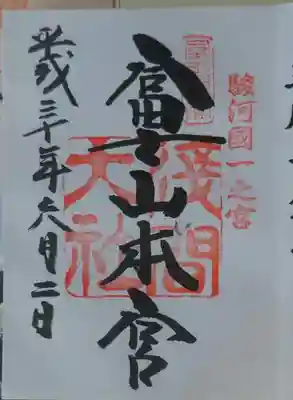 駿河國一之宮
富士山本宮
淺間
大社
平成三十年六月二日